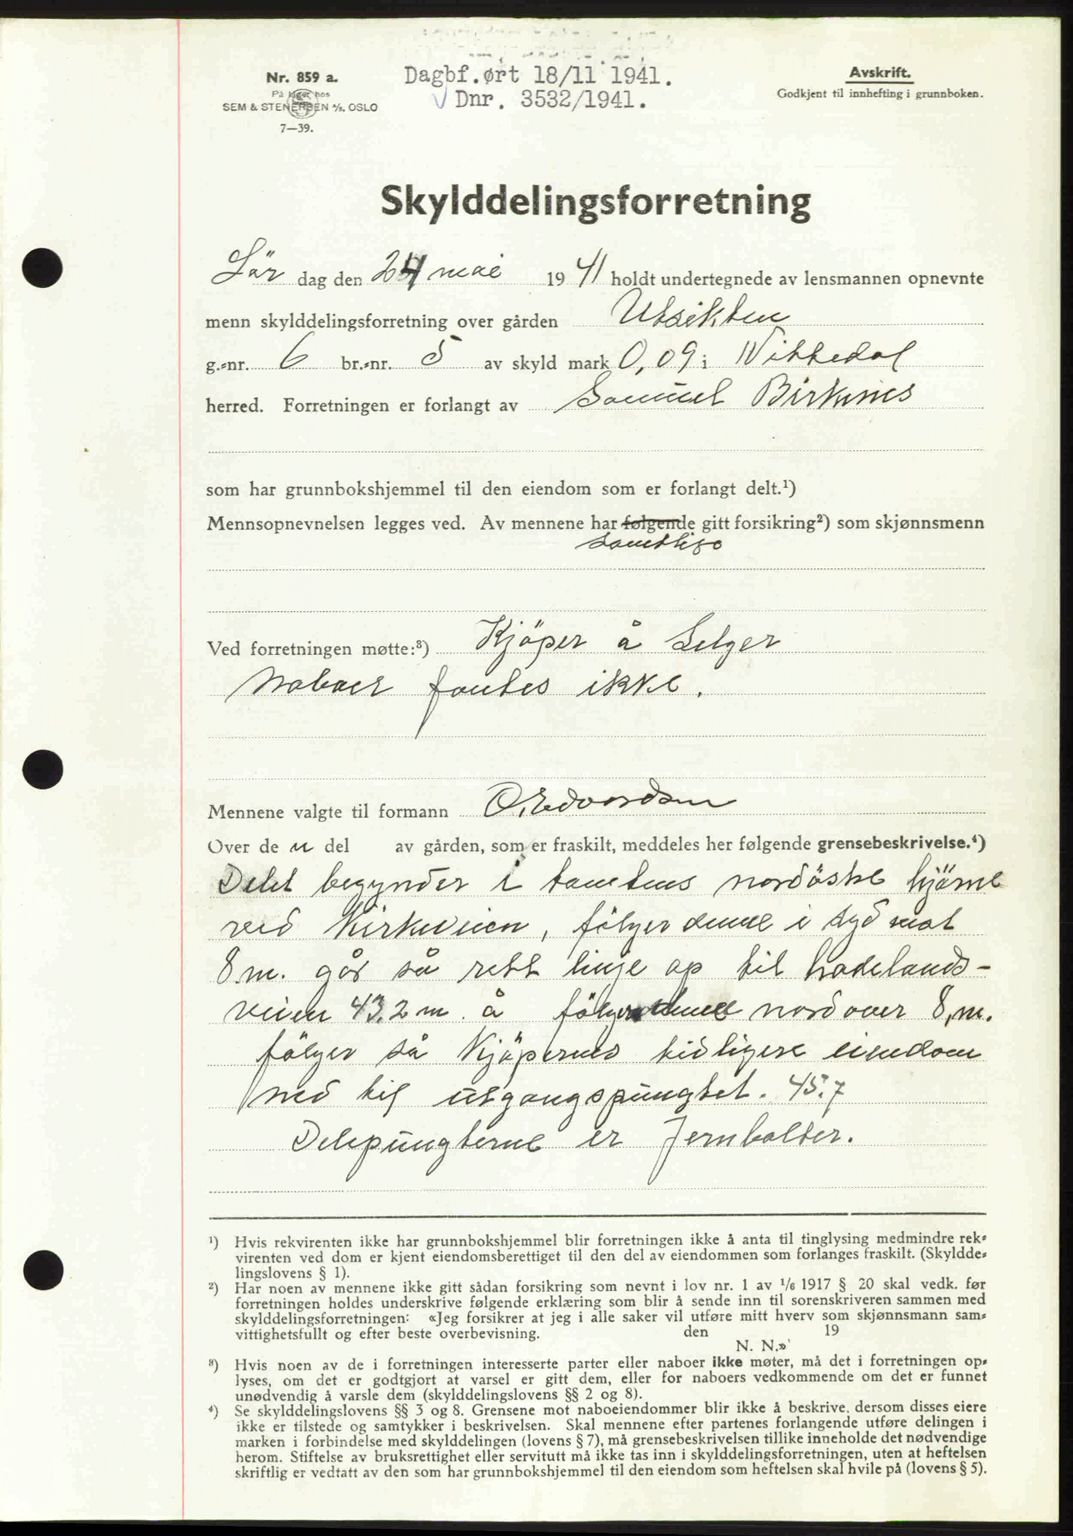 Nr. 859 a.
På lager hos
SEM & STENERSEN A/S, OSLO
7—39.
Dagbf.ørt 18/11 1941.
Dnr. 3532/1941.
Avskrift.
Godkjent til innhefting i grunnboken.
Skylddelingsforretning
Lör dag den 24 mai 1941 holdt undertegnede av lensmannen opnevnte
menn skylddelingsforretning over gården Utsikten
g.-nr. 6 br.-nr. 5 av skyld mark 0,09 i Nittedal
herred. Forretningen er forlangt av Samuel Birknes
som har grunnbokshjemmel til den eiendom som er forlangt delt.¹)
Mennsopnevnelsen legges ved. Av mennene har følgende gitt forsikring²) som skjønnsmenn
samtlige
Ved forretningen møtte:³) Kjöper å Selger
Naboer fantes ikke.
Mennene valgte til formann O. Edvardsen
Over de n del av gården, som er fraskilt, meddeles her følgende grensebeskrivelse.⁴)
Delet begynder i tomtens nordöstre hjörne
ved Kirkeveien, fölger denne i syd vest
8 m. går så rett linje op til hadelands-
veien 43,2 m å fölger denne nordover 8, m.
fölger så Kjöpernes tidligere eiendom
ned til utgangspungtet. 45,7
Delepungterne er Jernbolter.
¹) Hvis rekvirenten ikke har grunnbokshjemmel blir forretningen ikke å anta til tinglysing medmindre rek-
virenten ved dom er kjent eiendomsberettiget til den del av eiendommen som forlanges fraskilt. (Skyldde-
lingslovens § 1).
²) Har noen av mennene ikke gitt sådan forsikring som nevnt i lov nr. 1 av 1/6 1917 § 20 skal vedk. før
forretningen holdes underskrive følgende erklæring som blir å sende inn til sorenskriveren sammen med
skylddelingsforretningen: «Jeg forsikrer at jeg i alle saker vil utføre mitt hverv som skjønnsmann sam-
vittighetsfullt og efter beste overbevisning. den 19
N. N.»
³) Hvis noen av de i forretningen interesserte parter eller naboer ikke møter, må det i forretningen op-
lyses, om det er godtgjort at varsel er gitt dem, eller for naboers vedkommende om det er funnet
unødvendig å varsle dem (skylddelingslovens §§ 2 og 8).
⁴) Se skylddelingslovens §§ 3 og 8. Grensene mot naboeiendommer blir ikke å beskrive, dersom disses eiere
ikke er tilstede og samtykker i beskrivelsen. Skal mennene efter partenes forlangende utføre delingen i
marken i forbindelse med skylddelingen (lovens § 7), må grensebeskrivelsen tillike inneholde det nødvendige
herom. Stiftelse av bruksrettighet eller servitutt må ikke tas inn i skylddelingsforretningen, uten at heftelsen
skriftlig er vedtatt av den som har grunnbokshjemmel til den eiendom som heftelsen skal hvile på (lovens § 5).